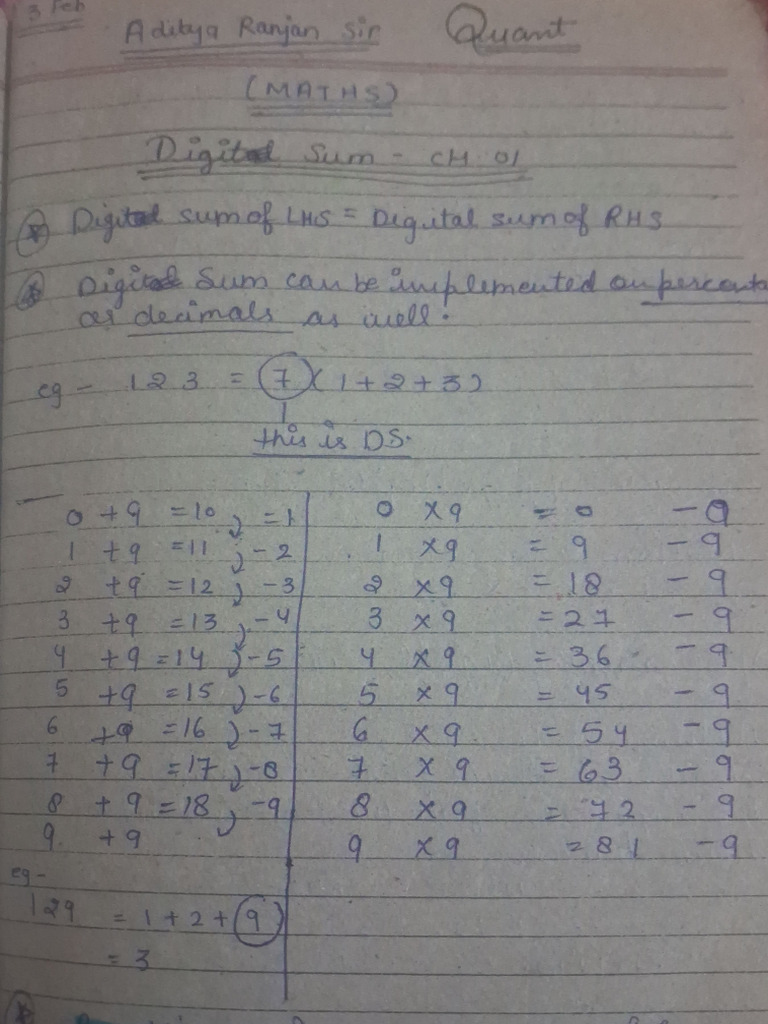 3 Feb
Aditya Ranjan Sir Quant
(MATHS)
Digital Sum - CH 01
Digital sum of LHS = Digital sum of RHS
Digital Sum can be implemented on percenta
as decimals as well.
eg - 123 = 7 (1+2+3)
this is DS.
0 +9 =10, =1 0 ×9 = 0 - 0
1 +9 =11, -2 1 ×9 = 9 - 9
2 +9 =12, -3 2 ×9 = 18 - 9
3 +9 =13, -4 3 ×9 = 27 - 9
4 +9 =14, -5 4 ×9 = 36 - 9
5 +9 =15, -6 5 ×9 = 45 - 9
6 +9 =16, -7 6 ×9 = 54 - 9
7 +9 =17, -8 7 ×9 = 63 - 9
8 +9 =18, -9 8 ×9 = 72 - 9
9 +9 9 ×9 = 81 - 9
eg -
129 = 1+2+9
= 3